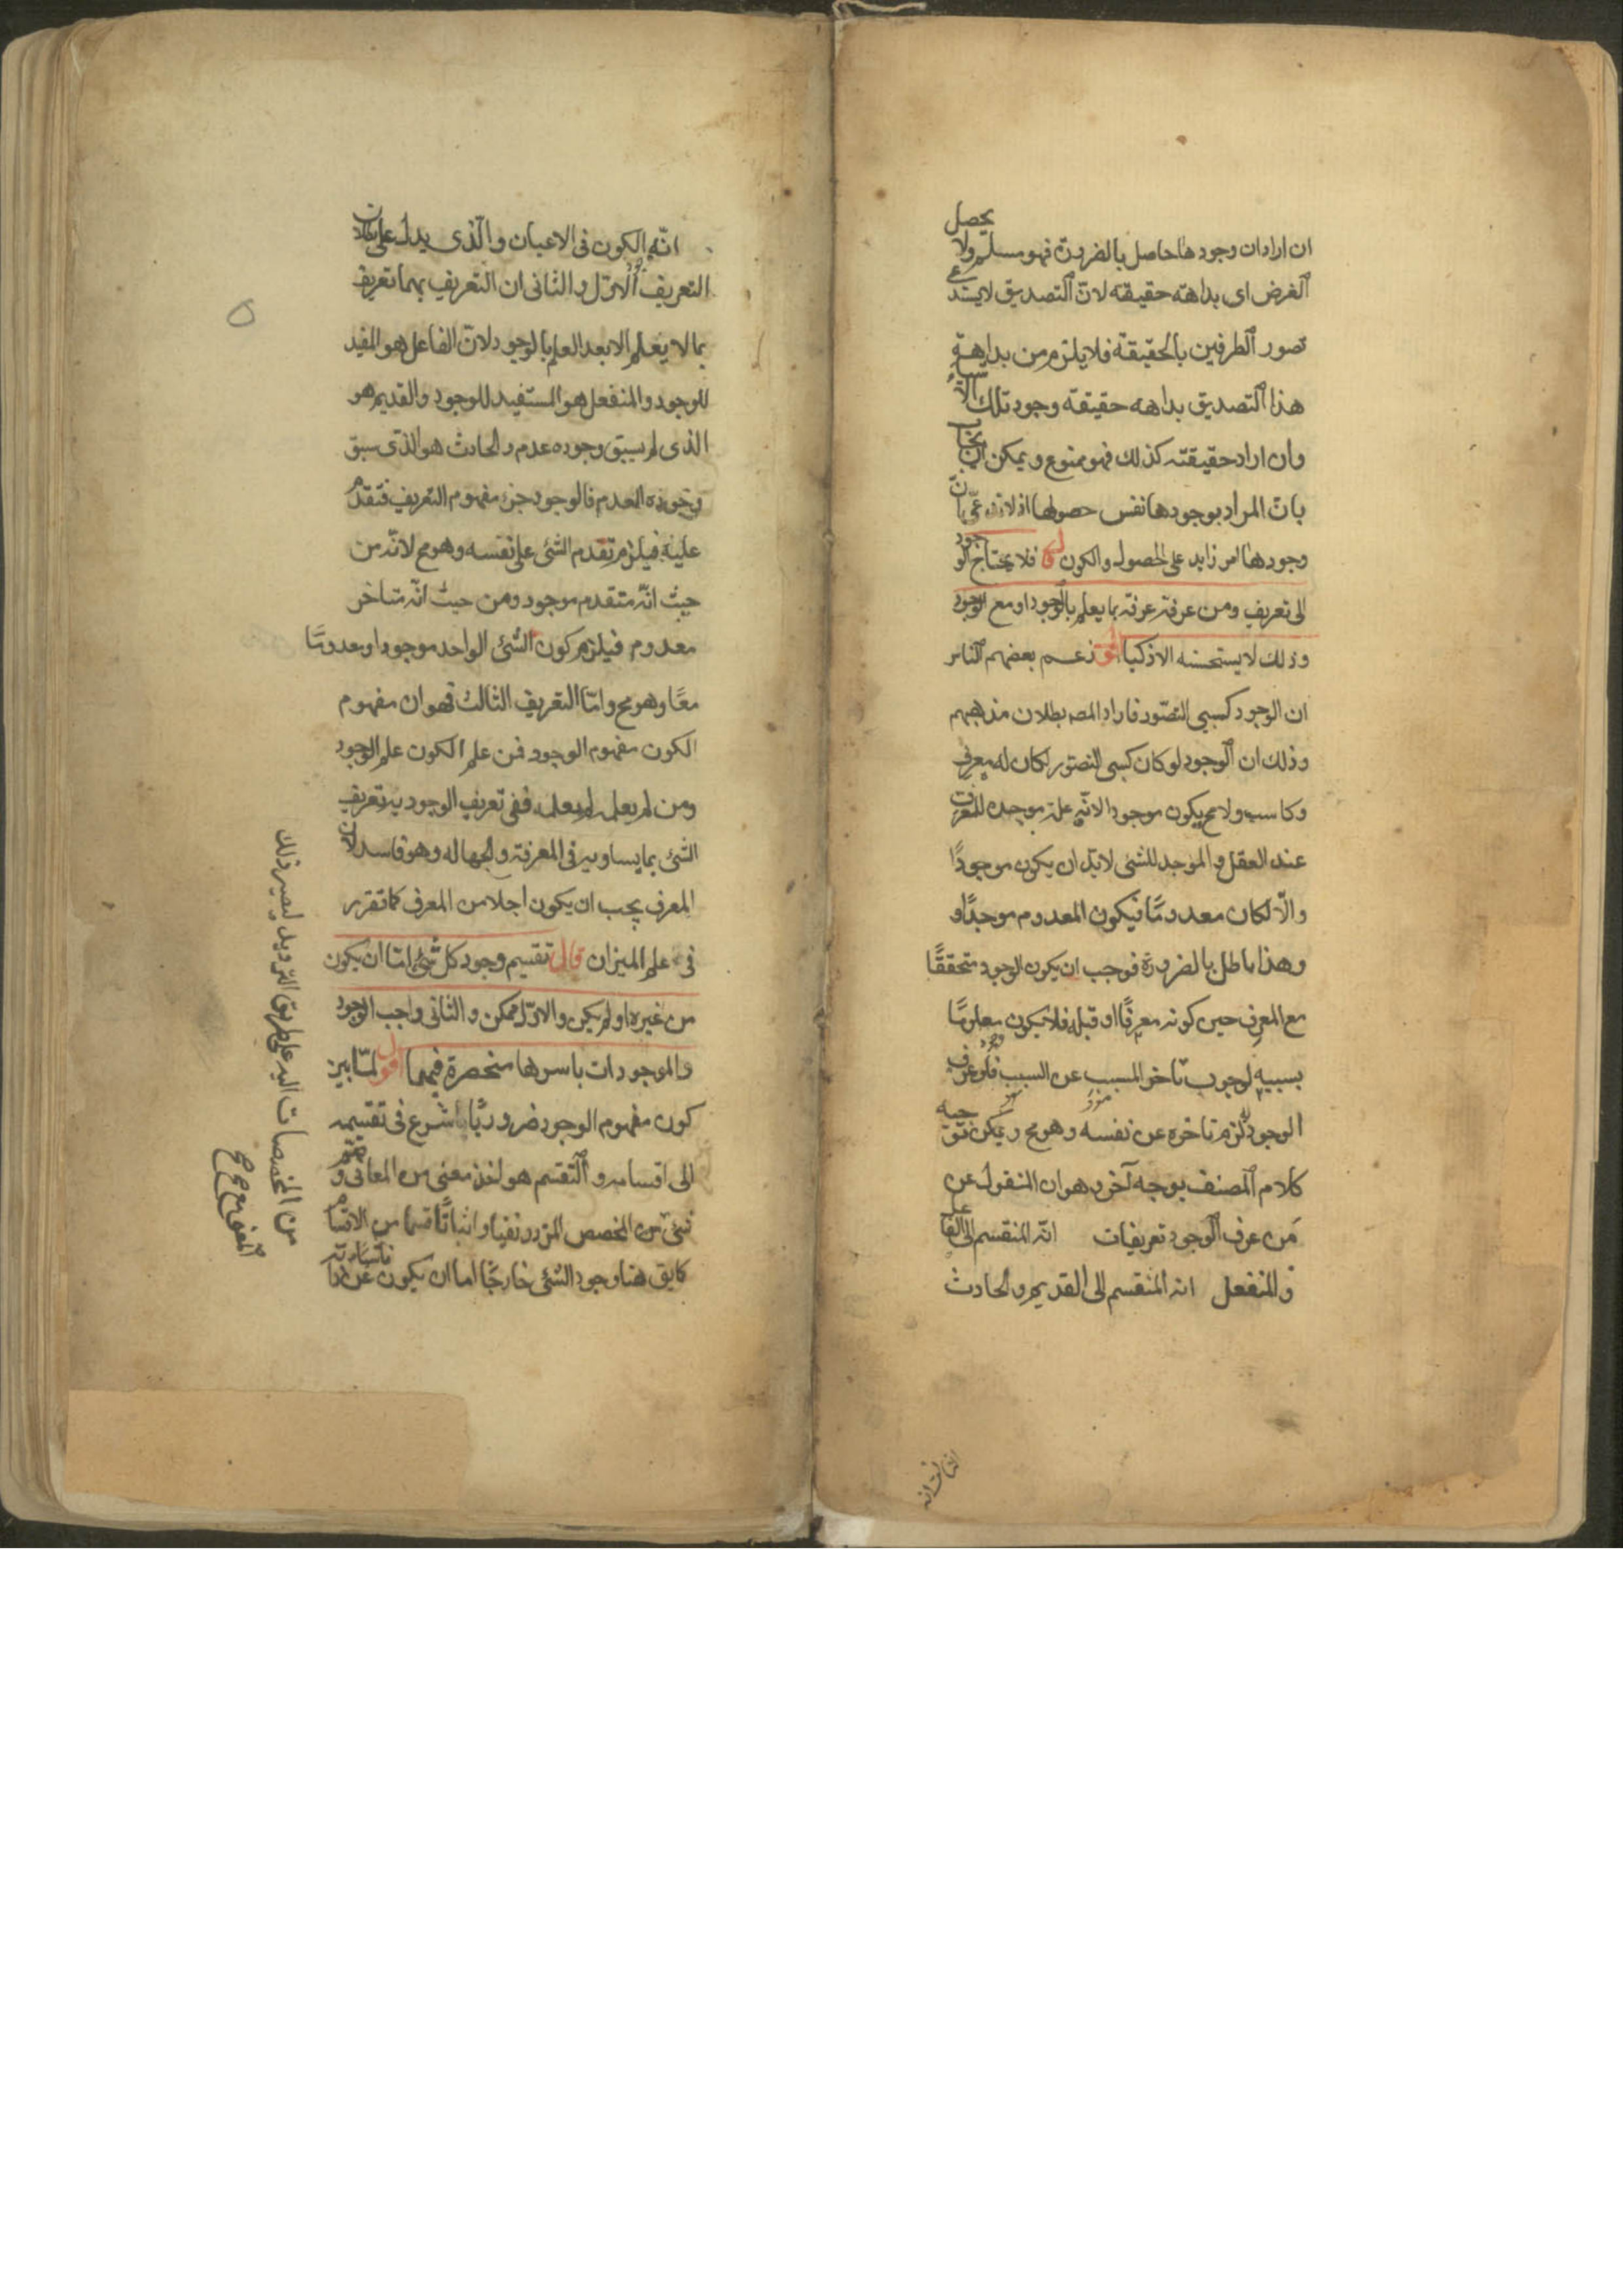 ان اراد ان وجودها حاصل بالضرورة فهو مسلم ولا يحصل
الغرض اى بداهة حقيقته لان التصديق لا يستدعى
تصور الطرفين بالحقيقة فلا يلزم من بداهة
هذا التصديق بداهه حقيقته وجود تلك الاشياء
وان اراد حقيقته كذلك فهو ممنوع ويمكن ان يجاب
بان المراد بوجودها نفس حصولها اذ لا
وجودها امر زايد على الحصول والكون فلا يحتاج الوجود
الى تعريف ومن عرفه عرفه بما يعلم بالوجود او مع الوجود
وذلك لا يستحسنه الاذكيا اقول زعم بعضهم الناس
ان الوجود كسبى التصور فاراد المصه بطلان مذهبهم
وذلك ان الوجود لو كان كسبى التصور لكان له معرف
وكاسب ولا مح يكون موجودا لانه علة موجده للمعرف
عند العقل والموجد للشئ لابد ان يكون موجودًا
والّا لكان معدومًا فيكون المعدوم موجدًا و
وهذا باطل بالضرورة فوجب ان يكون الوجود متحققًا
مع المعرف حين كونه معرفًا او قبله فلا يكون معلومًا
بسببه لوجوب تاخر المسبب عن السبب فلو عرف
الوجود لزم تاخره عن نفسه وهو مح ويمكن توجيه
كلام المصنف بوجه آخر وهو ان المنقول عن
مَن عرف الوجود تعريفات انه المنقسم الى الفاعل
والمنفعل انه المنقسم الى القديم والحادث
انه الكون فى الاعيان والّذى يدل على بطلان
التعريف الاول والثانى ان التعريف بهما تعريف
بما لا يعلم الا بعد العلم بالوجود لان الفاعل هو المفيد
للوجود والمنفعل هو المستفيد للوجود والقديم هو
الذى لم يسبق وجوده عدم والحادث هو الذى سبق
وجوده العدم فالوجود جزء مفهوم التعريف فتقدم
عليه فيلزم تقدم الشئ على نفسه وهو مح لانّه من
حيث انّه متقدم موجود ومن حيث انّه متاخر
معدوم فيلزم كون الشئ الواحد موجودا ومعدومًا
معًا وهو مح وامّا التعريف الثالث فهو ان مفهوم
الكون مفهوم الوجود فمن علم الكون علم الوجود
ومن لم يعلمه لم يعلمه ففى تعريف الوجود به تعريف
الشئ بما يساويه فى المعرفة والجهاله وهو فاسد لان
المعرف يجب ان يكون اجلا من المعرف كما تقرر
فى علم الميزان قال تقسيم وجود كل شئ امّا ان يكون
من غيره او لم يكن والاوّل ممكن والثانى واجب الوجود
والموجودات باسرها منحصرة فيهما اقول لمّا بين
كون مفهوم الوجود ضروريًّا شرع فى تقسيمه
الى اقسامه والتقسيم هو اخذ معنى من المعانى وضم
شئ من المخصص المردد نفيا واثباتًا قسما من الاقسام
كايق هنا وجود الشئ خارجًا اما ان يكون عن ذاته
من المخصصات اليه على طريق الترديد ليصير ذلك